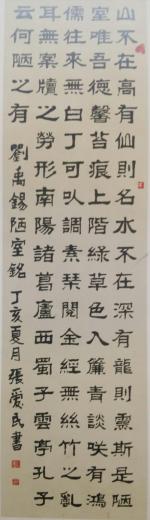 山不在高有仙則名水不在深有龍則靈斯是陋
室唯吾德馨苔痕上階綠草色入簾青談咲有鴻
儒往來無白丁可以調素琴閱金經無絲竹之亂
耳無案牘之勞形南陽諸葛廬西蜀子雲亭孔子
云何陋之有 劉禹錫陋室銘 丁亥夏月 張愛民書